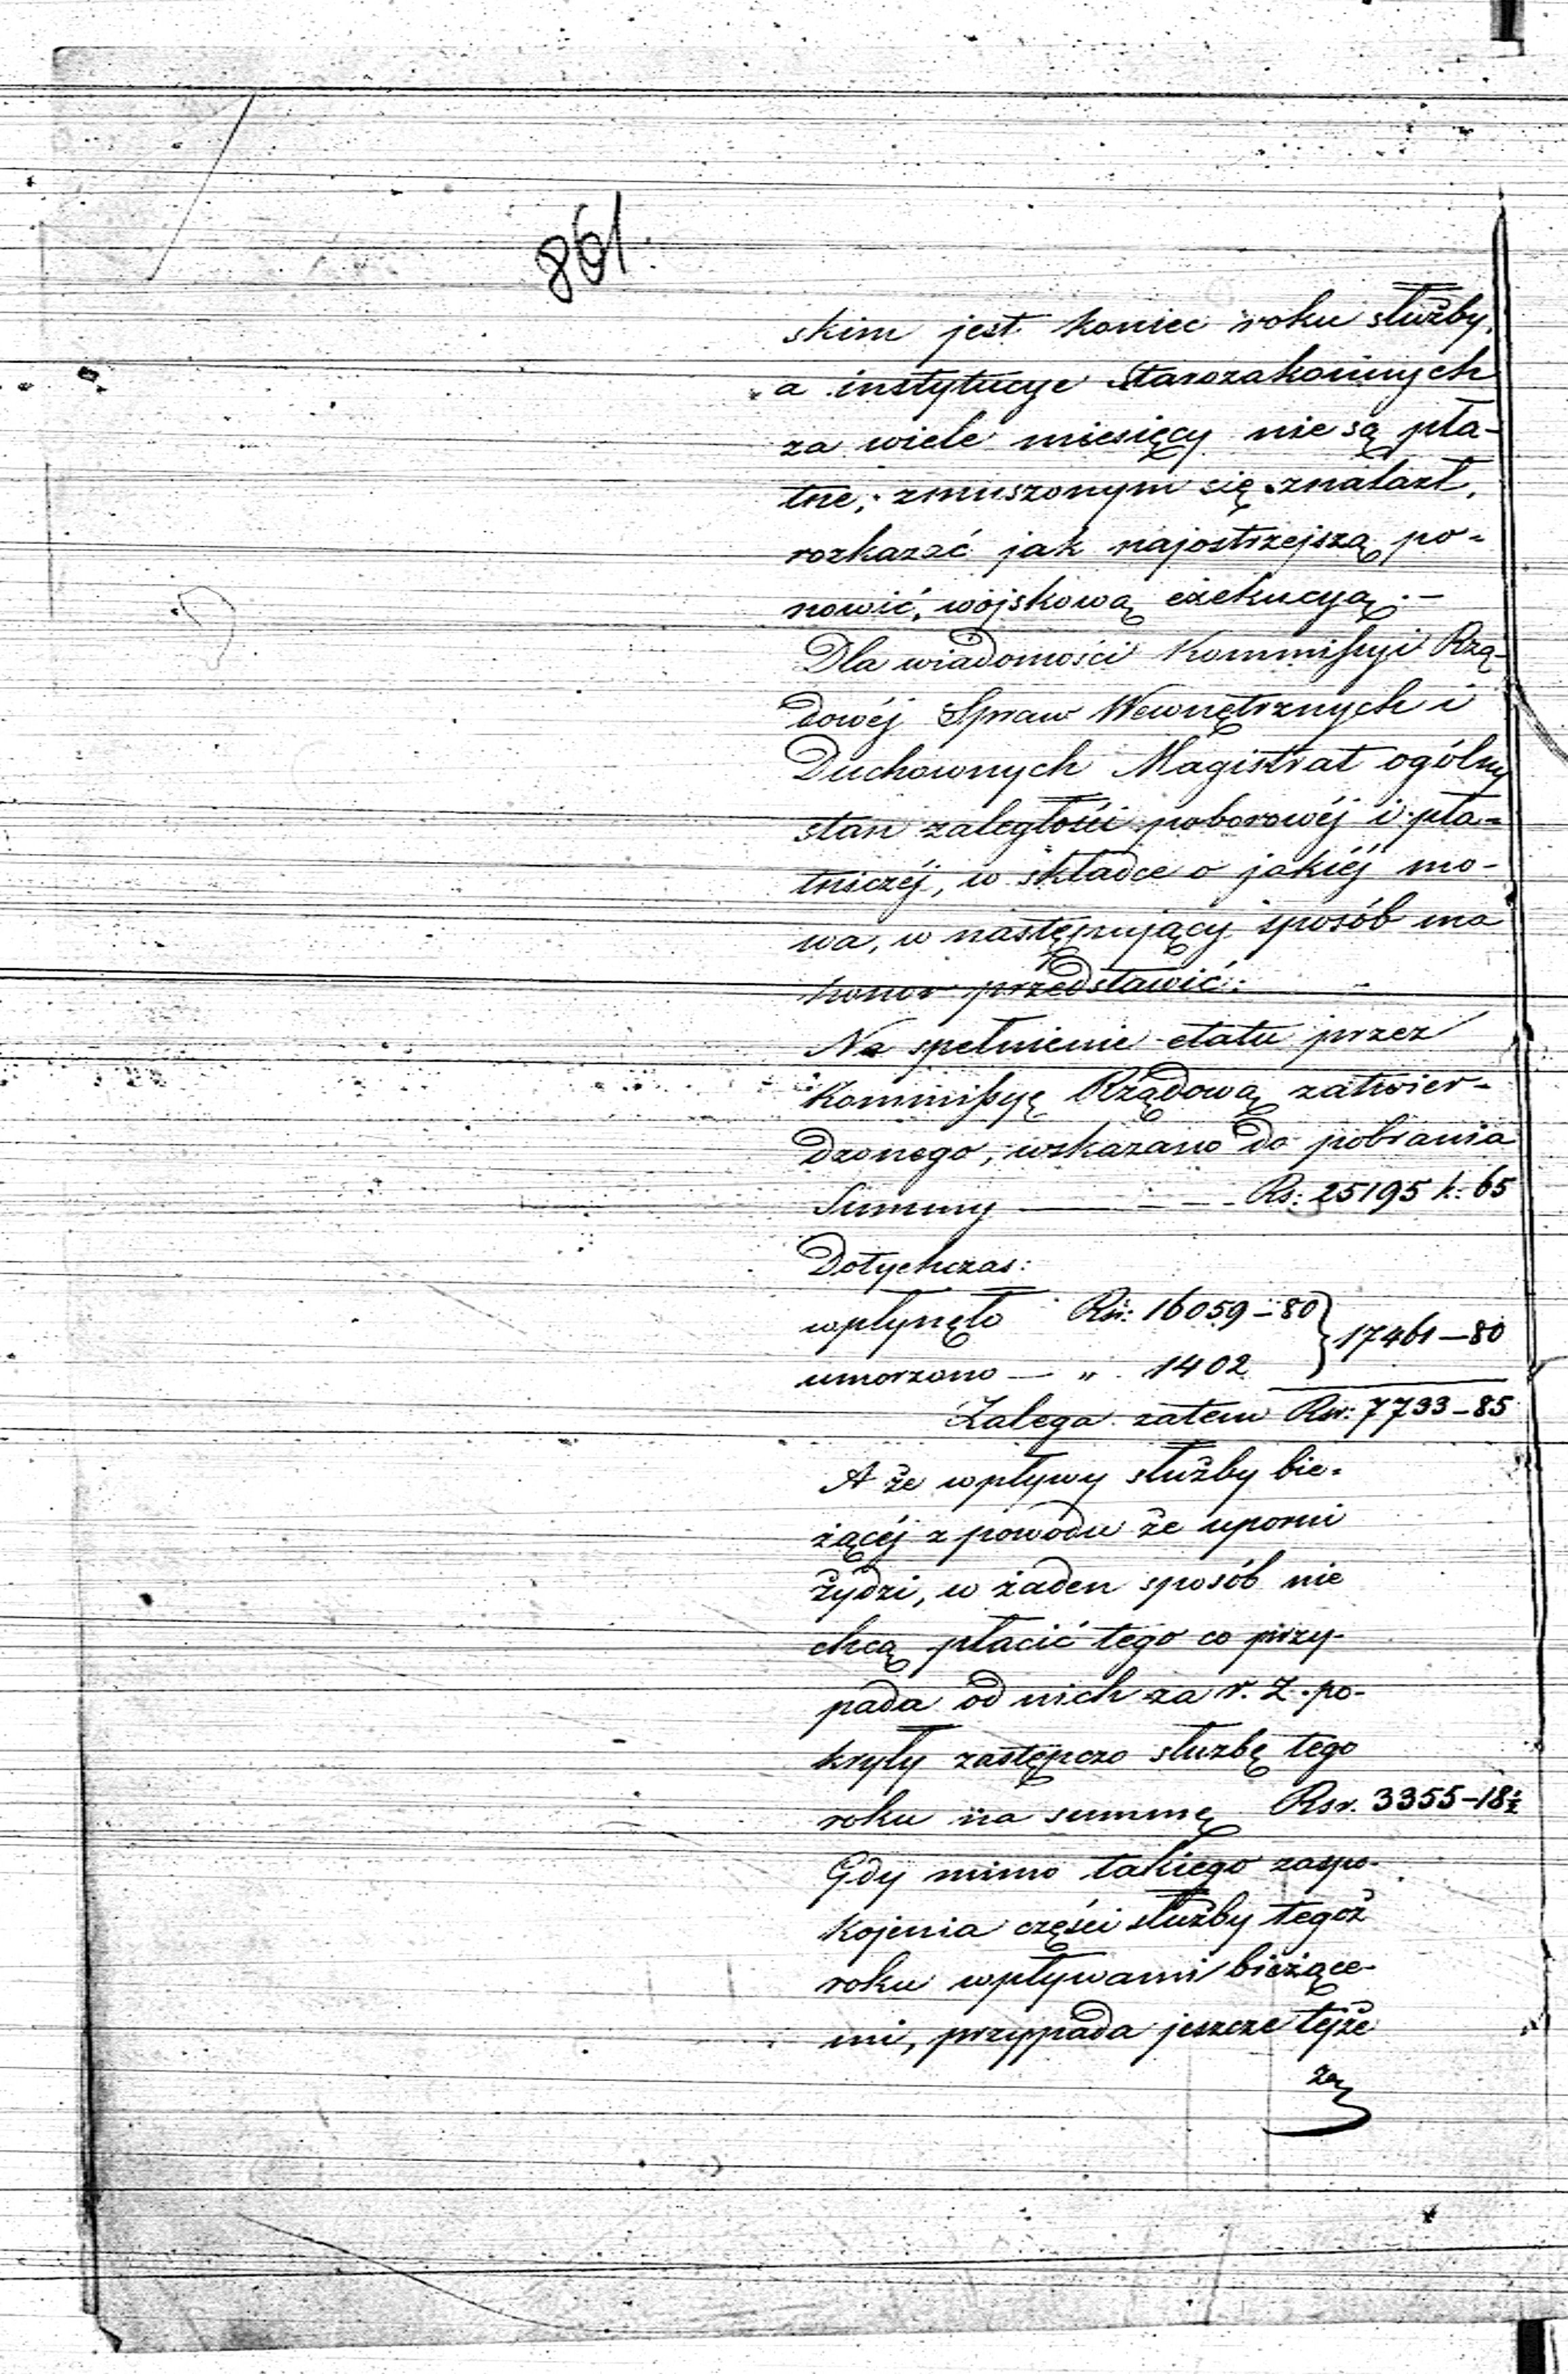 861.
skim jest koniec roku służby,
a instytucye Starozakonnych
za wiele miesięcy nie są pła-
tne, zmuszonym się znalazł,
rozkazać jak najostrzejszą po-
nowić, wojskową exekucyą.—
Dla wiadomości Kommissyi Rzą-
dowéj Spraw Wewnętrznych i
Duchownych Magistrat ogólny
stan zaległości poborowéj i pła-
tniczéj, w składce o jakiéj mo-
wa, w następujący sposób ma
honor przedstawić:
Na spełnienie etatu przez
Kommissyę Rządową zatwier-
dzonego, wskazano do pobrania
Summy — — — Rs: 25195 k: 65
Dotychczas:
wpłynęło Rsr: 16059 – 80
umorzono — „ 1402 } 17461 – 80
Zalega zatem Rsr: 7733 – 85
A że wpływy służby bie-
żącéj z powodu że uporni
żydzi, w żaden sposób nie
chcą płacić tego co przy-
pada od nich za r. z. po-
kryły zastępczo służbę tego
roku na summę Rsr. 3355 – 18½
Gdy mimo takiego zaspo-
kojenia części służby tegoż
roku wpływami bieżące-
mi, przypada jeszcze tejże
za